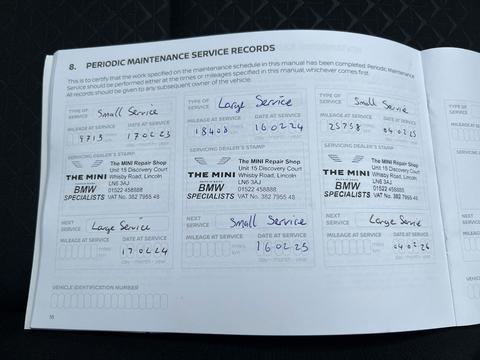 8. PERIODIC MAINTENANCE SERVICE RECORDS
This is to certify that the work specified on the maintenance schedule in this manual has been completed. Periodic Maintenance
Service should be performed either at the times or mileages specified in this manual, whichever comes first.
All records should be given to any subsequent owner of the vehicle.
TYPE OF SERVICE Small Service
MILEAGE AT SERVICE DATE AT SERVICE
9713 170223
day - month - year
SERVICING DEALER'S STAMP
THE MINI
REPAIR SHOP
BMW
SPECIALISTS
The MINI Repair Shop
Unit 15 Discovery Court
Whisby Road, Lincoln
LN6 3AJ
01522 458888
VAT No. 382 7955 48
NEXT SERVICE Large Service
MILEAGE AT SERVICE DATE AT SERVICE
170224
day - month - year
TYPE OF SERVICE Large Service
MILEAGE AT SERVICE DATE AT SERVICE
18408 160224
day - month - year
SERVICING DEALER'S STAMP
THE MINI
REPAIR SHOP
BMW
SPECIALISTS
The MINI Repair Shop
Unit 15 Discovery Court
Whisby Road, Lincoln
LN6 3AJ
01522 458888
VAT No. 382 7955 48
NEXT SERVICE Small Service
MILEAGE AT SERVICE DATE AT SERVICE
160225
day - month - year
TYPE OF SERVICE Small Service
MILEAGE AT SERVICE DATE AT SERVICE
25758 040225
day - month - year
SERVICING DEALER'S STAMP
THE MINI
REPAIR SHOP
BMW
SPECIALISTS
The MINI Repair Shop
Unit 15 Discovery Court
Whisby Road, Lincoln
LN6 3AJ
01522 458888
VAT No. 382 7955 48
NEXT SERVICE Large Service
MILEAGE AT SERVICE DATE AT SERVICE
040226
day - month - year
VEHICLE IDENTIFICATION NUMBER